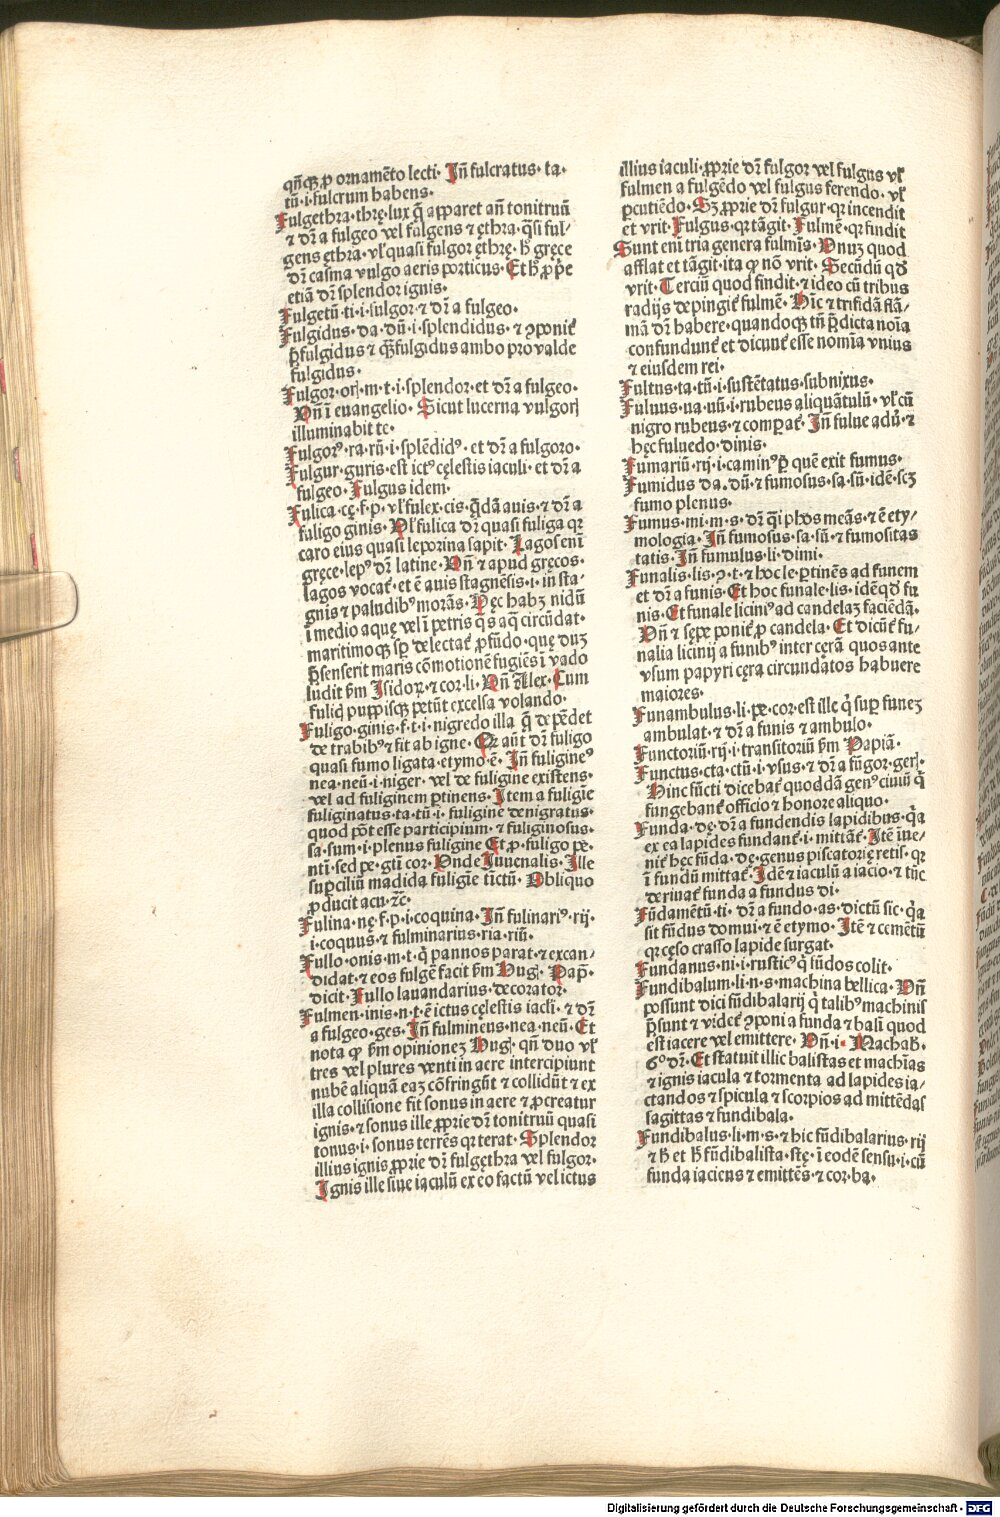 qñqꝫ ꝓ ornamēto lecti· Jñ fulcratus· ta·
tū·i·fulcrum habens·
Fulgethra·thrę·lux q̄ apparet añ tonitruū
⁊ dr̄ a fulgeo vel fulgens ⁊ ęthra·q̄si ful/
gens ęthra·vl̕ quasi fulgor ęthrę·h̄ gręce
dr̄ casma vulgo aeris porticus· Et h̄ ꝓpͥe
etiā dr̄ splendor ignis·
Fulgetū·ti·i·fulgor·⁊ dr̄ a fulgeo·
Fulgidus·da·dū·i·splendidus·⁊ ꝯponit᷑
p̄fulgidus ⁊ q̄ꝫfulgidus ambo pro valde
fulgidus·
Fulgor·orꝭ·m·t·i·splendor·et dr̄ a fulgeo·
Vñ ī euangelio· Sicut lucerna vulgorꝭ
illuminabit te·
Fulgorꝰ·ra·rū·i·splēdidꝰ·et dr̄ a fulgoro·
Fulgur·guris·est ictꝰ cęlestis iaculi·et dr̄ a
fulgeo· Fulgus idem·
Fulica·cę·f·p·vl̕ fulex·cis·q̄dā auis·⁊ dr̄ a
fuligo ginis· Vl̕ fulica dr̄ quasi fuliga qr
caro eius quasi leporina sapit· Lagos enī
gręce·lepꝰ dr̄ latine· Vñ ⁊ apud gręcos·
lagos vocat᷑·et ē auis stagnēsis·i·in sta/
gnis ⁊ paludibꝰ morās· Hęc habꝫ nidū
ī medio aquę vel ī petris qͣs aq̄ circūdat·
maritimoqꝫ sp̄ delectat᷑ ꝓfūdo·quę duꝫ
p̄senserit maris cōmotionē fugiēs ī vado
ludit ẜm Isidoꝝ·⁊ cor·li· Vñ Alex· Cum
fulicę puppisqꝫ petūt excelsa volando·
Fuligo·ginis·f·t·i·nigredo illa q̄ depēdet
de trabibꝰ ⁊ fit ab igne· Qr aūt dr̄ fuligo
quasi fumo ligata·etymo·ē· Jñ fuligineꝰ
nea·neū·i·niger·vel de fuligine existens·
vel ad fuliginem ꝑtinens· Item a fuligīe
fuliginatus·ta·tū·i·fuligine denigratus·
quod pōt esse participium·⁊ fuliginosus·
sa·sum·i·plenus fuligine Et ꝓ·fuligo pe·
nti·sed pe·gtī cor· Vnde Juuenalis· Ille
suꝑciliū madida fuligīe tīctū· Obliquo
ꝓducit acu·⁊c̄·
Fulina·nę·f·p·i·coquina· Jñ fulinariꝰ·rij·
i·coquus·⁊ fulminarius·ria·riū·
Fullo·onis·m·t·qͥ pannos parat·⁊ excan/
didat·⁊ eos fulgē facit ẜm Hug· Pap̄·
dicit· Fullo lauandarius·decorator·
Fulmen·inis·n·t·ē ictus cęlestis iacli·⁊ dr̄
a fulgeo·ges· Jñ fulmineus·nea·neū· Et
nota ꝙ ẜm opinionez Hug· qñ duo vl̕
tres vel plures venti in aere intercipiunt
nubē aliquam eaꝫ cōfringūt ⁊ collidūt ⁊ ex
illa collisione fit sonus in aere ⁊ ꝓcreatur
ignis·⁊ sonus ille ꝓprie dr̄ tonitruū quasi
tonus·i·sonus terrēs qr terat· Splendor
illius ignis ꝓprie dr̄ fulgęthra vel fulgor·
Ignis ille siue iaculū ex eo factū vel ictus
illius iaculi·ꝓprie dr̄ fulgor vel fulgus vl̕
fulmen a fulgēdo vel fulgus ferendo·vl̕
ꝑcutiēdo· Sꝫ ꝓprie dr̄ fulgur·qr incendit
et vrit· Fulgus·qr tāgit· Fulmē·qr findit
Sunt enī tria genera fulmīs· Vnuꝫ quod
afflat et tāgit·ita ꝙ nō vrit· Secūdū qd̕
vrit· Terciū quod findit·⁊ ideo cū tribus
radijs depingit᷑ fulmē· Hīc ⁊ trifidā flā/
mā dr̄ habere·quandoqꝫ tñ p̄dicta noīa
confundunt᷑ et dicunt᷑ esse nomīa vnius
⁊ eiusdem rei·
Fultus·ta·tū·i·sustētatus·subnixus·
Fuluus·ua·uū·i·rubeus aliquātulū·vl̕ cū
nigro rubeus·⁊ comꝑat᷑· Jñ fulue adū·⁊
hęc fuluedo·dinis·
Fumariū·rij·i·caminꝰ ꝑ quē exit fumus·
Fumidus da·dū·⁊ fumosus·sa·sū·idē·scꝫ
fumo plenus·
Fumus·mi·m·s·dr̄ qͣsi phos meās·⁊ ē ety/
mologia· Jñ fumosus·sa·sū·⁊ fumositas
tatis· Jñ fumulus·li·dimi·
Funalis·lis·ꝯ·t·⁊ hoc le·ꝑtinēs ad funem
et dr̄ a funis· Et hoc funale·lis·idē qd̕ fu
nis· Et funale liciniꝰ ad candelaꝫ faciēdā·
Vñ ⁊ sępe ponit᷑ ꝓ candela· Et dicūt᷑ fu/
nalia licinij a funibꝰ inter cęrā quos ante
vsum papyri cęra circundatos habuere
maiores·
Funambulus·li·pe·cor·est ille qͥ suꝑ funeꝫ
ambulat·⁊ dr̄ a funis ⁊ ambulo·
Functoriū·rij·i·transitoriū ẜm Papiā·
Functus·cta·ctū·i·vsus·⁊ dr̄ a fūgor·gerꝭ·
Hinc fūcti dicebāt᷑ quoddā genꝰ ciuiū qͥ
fungebant᷑ officio ⁊ honore aliquo·
Funda·dę·dr̄ a fundendis lapidibus·qͥa
ex ea lapides fundant᷑·i·mittāt᷑· Itē īue/
nit᷑ hęc fūda·dę·genus piscatorię retis·qr
ī fundū mittat᷑· Idē ⁊ iaculū a iacio·⁊ tūc
deriuat᷑ funda a fundus di·
Fūdamētū·ti·dr̄ a fundo·as·dictū sic·qͥa
sit fūdus domui·⁊ ē etymo· Itē ⁊ cemētū
qr cęso crasso lapide surgat·
Fundanus·ni·i·rusticꝰ qͥ fūdos colit·
Fundibalum·li·n·s·machina bellica· Vñ
possunt dici fūdibalarij qͥ talibꝰ machinis
p̄sunt ⁊ videt᷑ ꝯponi a funda ⁊ basi quod
est iacere vel emittere· Vñ·i· Machab·
6°dr̄· Et statuit illic balistas et machīas
⁊ ignis iacula ⁊ tormenta ad lapides ia/
ctandos ⁊ spicula ⁊ scorpios ad mittēdas
sagittas ⁊ fundibala·
Fundibalus·li·m·s·⁊ hic fūdibalarius·rij
⁊ h̄ et h̄ fūdibalista·stę·ī eodē sensu·i·cū
funda iaciens ⁊ emittēs·⁊ cor·ba·
Digitalisierung gefördert durch die Deutsche Forschungsgemeinschaft - DFG